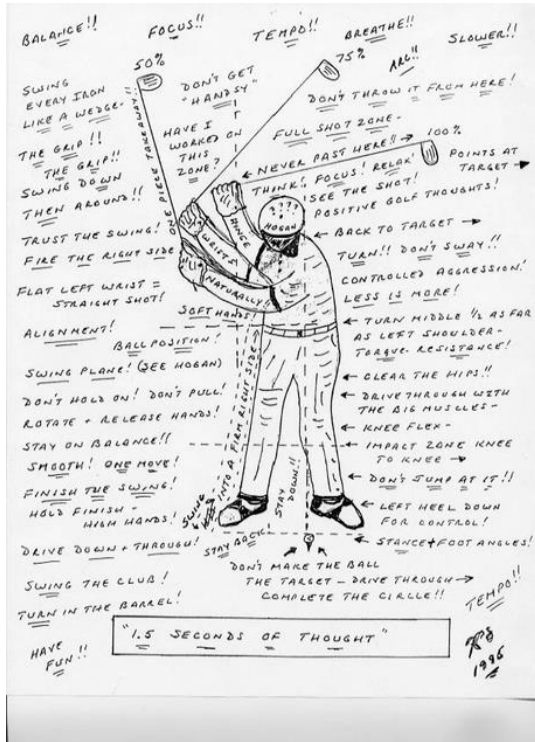 BALANCE!! FOCUS!! TEMPO!! BREATHE!! SLOWER!!
50%
75%
ARC!!
SWING
EVERY IRON
LIKE A WEDGE-
THE GRIP!!
THE GRIP!!
SWING DOWN
THEN AROUND!!
TRUST THE SWING!
FIRE THE RIGHT SIDE
FLAT LEFT WRIST =
STRAIGHT SHOT!
ALIGNMENT!
BALL POSITION!
SWING PLANE! (SEE HOGAN)
DON'T HOLD ON! DON'T PULL!
ROTATE + RELEASE HANDS!
STAY ON BALANCE!!
SMOOTH! ONE MOVE!
FINISH THE SWING!
HOLD FINISH -
HIGH HANDS!
DRIVE DOWN + THROUGH!
SWING THE CLUB!
TURN IN THE BARREL!
HAVE
FUN!!
ONE PIECE TAKEAWAY!!
DON'T GET
"HANDSY"
HAVE I
WORKED ON
THIS
ZONE?
WRISTS
HINGE
NATURALLY!!
SOFT HANDS!
INTO A FIRM RIGHT SIDE
SWING
STAY BACK
STAY
DOWN!!
????
HOGAN
DON'T THROW IT FROM HERE!
FULL SHOT ZONE-
100%
NEVER PAST HERE!!
POINTS AT
TARGET
THINK! FOCUS! RELAX!
SEE THE SHOT!
POSITIVE GOLF THOUGHTS!
BACK TO TARGET
TURN!! DON'T SWAY!!
CONTROLLED AGGRESSION!
LESS IS MORE!
TURN MIDDLE 1/2 AS FAR
AS LEFT SHOULDER-
TORQUE-RESISTANCE!
CLEAR THE HIPS!!
DRIVE THROUGH WITH
THE BIG MUSCLES-
KNEE FLEX-
IMPACT ZONE KNEE
TO KNEE
DON'T JUMP AT IT!!
LEFT HEEL DOWN
FOR CONTROL!
STANCE + FOOT ANGLES!
DON'T MAKE THE BALL
THE TARGET - DRIVE THROUGH
COMPLETE THE CIRCLE!!
TEMPO!!
"1.5 SECONDS OF THOUGHT"
1996